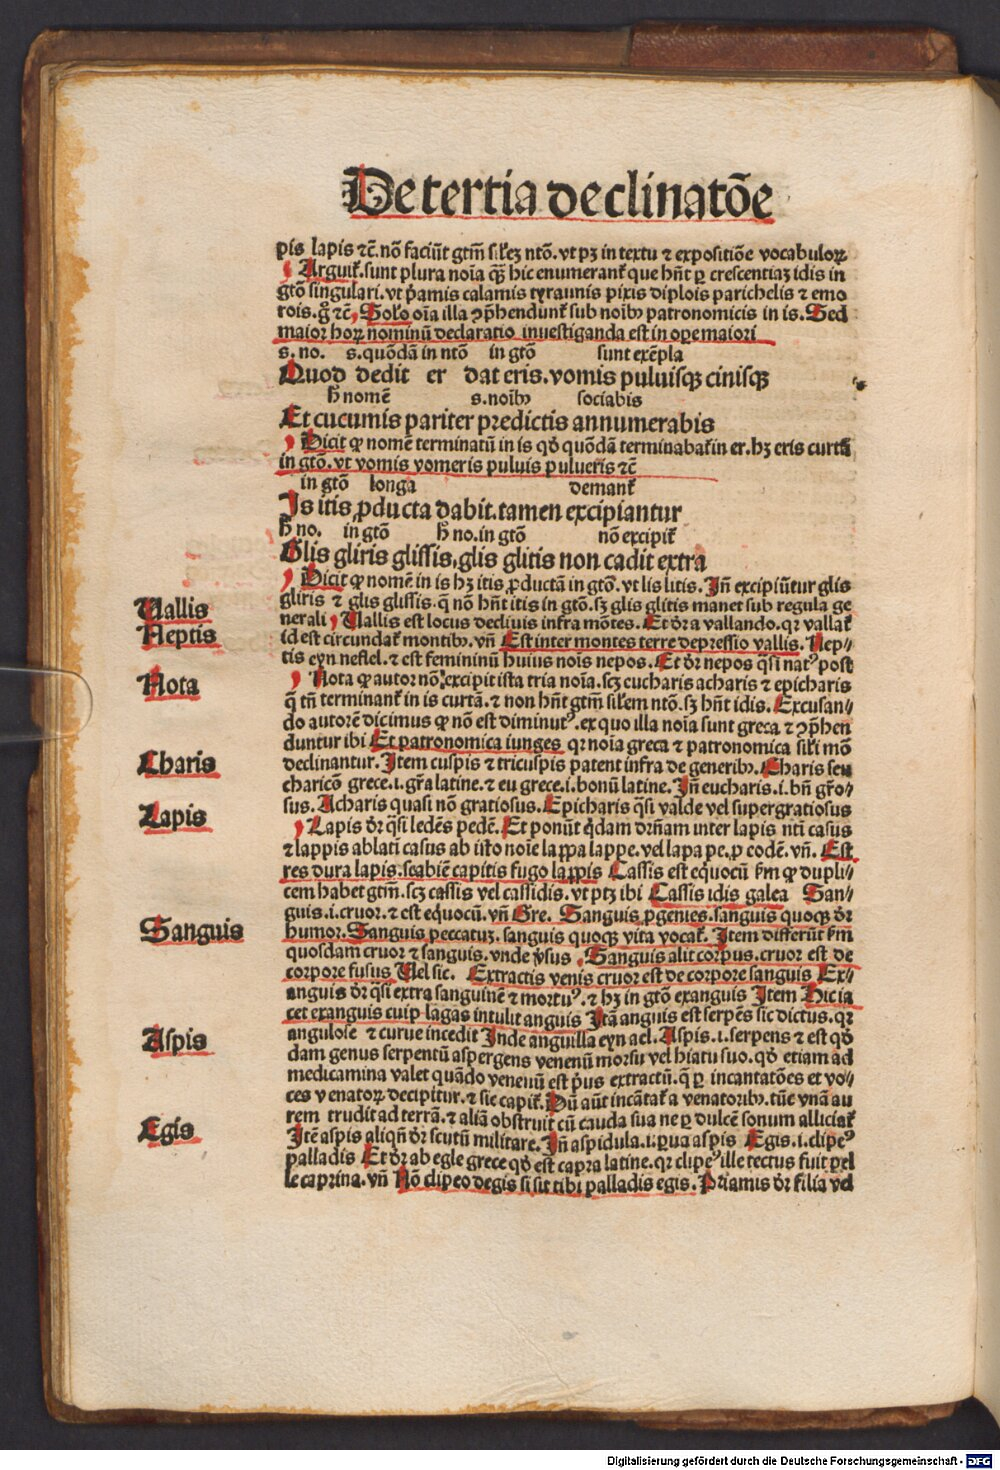 De tertia declinatōe
pis lapis ⁊c̄. nō faciūt gtm̄ sil'eʒ ntō. vt pʒ in textu ⁊ expositiōe vocabuloꝝ
Arguit̄. sunt plura noīa qꝫ hic enumerant̄ que hn̄t ꝑ crescentiaʒ idis in
gtō singulari. vt p̄amis calamis tyraunis pixis diplois parichelis ⁊ emo
rois. gͦ ⁊c̄, Sol'o oīa illa ꝯp̄hendunt̄ sub noībꝫ patronomicis in is. Sed
maior hoꝝ nominū declaratio inuestiganda est in oꝑe maiori
s. no. s. quōdā in ntō in gtō sunt exēpla
Quod dedit er dat eris. vomis puluisqꝫ cinisqꝫ
h̄ nomē s. noībꝫ sociabis
Et cucumis pariter predictis annumerabis
Dicit ꝙ nomē terminatū in is qd̓ quōdā terminabat̄ in er. hꝫ eris curtū
in gtō. vt vomis vomeris puluis pulueris ⁊c̄
in gtō longa demant̄
Is itis ꝓducta dabit. tamen excipiantur
h̄ no. in gtō h̄ no. in gtō nō excipit̄
Glis gliris glissis, glis glitis non cadit extra
Dicit ꝙ nomē in is hꝫ itis ꝓductā in gtō. vt lis litis. In̄ excipiūtur glis
gliris ⁊ glis glissis. q̄ nō hn̄t itis in gtō. sꝫ glis glitis manet sub regula ge
nerali, Uallis est locus decliuis infra mōtes. Et dr̄ a vallando. qꝛ vallat̄
id est circundat̄ montibꝫ. vn̄ Est inter montes terre depressio vallis. Nep-
tis eyn neflel. ⁊ est femininū huius nois nepos. Et dr̄ nepos q̄si natꝰ post
Nota ꝙ autor nō excipit ista tria noīa. scꝫ eucharis acharis ⁊ epicharis
q̄ tn̄ terminant̄ in is curtā. ⁊ non hn̄t gtm̄ sil'em ntō. sꝫ hn̄t idis. Excusan-
do autorē dicimus ꝙ nō est diminutꝰ. ex quo illa noīa sunt greca ⁊ ꝯp̄hen
duntur ibi Et patronomica iunges qꝛ noīa greca ⁊ patronomica sil'i mō
declinantur. Item cuspis ⁊ tricuspis patent infra de generibꝫ. Charis seu
charicō grece. i. gr̄a latine. ⁊ eu grece. i. bonū latine. In̄ eucharis. i. bn̄ gr̄o-
sus. Acharis quasi nō gratiosus. Epicharis q̄si valde vel supergratiosus
Lapis dr̄ q̄si ledēs pedē. Et ponūt q̄dam drn̄am inter lapis nti casus
⁊ lappis ablati casus ab isto noīe lappa lappe. vel lapa pe. ꝓ eodē. vn̄. Est
res dura lapis. scabiē capitis fugo lappis Cassis est equocū fm̄ ꝙ dupli-
cem habet gtm̄. scꝫ cassis vel cassidis. vt ptꝫ ibi Cassis idis galea San-
guis. i. cruor. ⁊ est eq̄uocū. vn̄ Gre. Sanguis ꝓgenies. sanguis quoqꝫ dr̄
humor. Sanguis peccatuꝫ. sanguis quoqꝫ vita vocat̄. Item differūt fm̄
quosdam cruor ⁊ sanguis. vnde v̓sus, Sanguis alit corpus. cruor est de
corpore fusus Uel sic. Extractis venis cruor est de corpore sanguis Ex-
anguis dr̄ q̄si extra sanguinē ⁊ mortuꝰ. ⁊ hꝫ in gtō exanguis Item Hic ia
cet exanguis cuiꝑ lagas intulit anguis Itā anguis est serpēs sic dictus. qꝛ
angulose ⁊ curue incedit Inde anguilla eyn ael. Aspis. i. serpens ⁊ est qd̓
dam genus serpentū aspergens venenū morsu vel hiatu suo. qd̓ etiam ad
medicamina valet quādo venenū est p̓us extractū. q̄ ꝑ incantatōes et vo-
ces venatoꝝ decipitur. ⁊ sic capit̄. Dū aūt incātat̄ a venatoribꝫ. tūc vnā au
rem trudit ad terrā. ⁊ aliā obstruit cū cauda sua ne ꝑ dulcē sonum alliciat̄
Itē aspis aliqn̄ dr̄ scutū militare. In̄ aspidula. i. ꝑua aspis Egis. i. clipeꝰ
palladis Et dr̄ ab egle grece qd̓ est capra latine. qꝛ clipeꝰ ille tectus fuit pel
le caprina. vn̄ Nō clipeo degis si sit tibi palladis egis. Priamis dr̄ filia vel
Uallis
Neptis
Nota
Charis
Lapis
Sanguis
Aspis
Egis
Digitalisierung gefördert durch die Deutsche Forschungsgemeinschaft - DFG